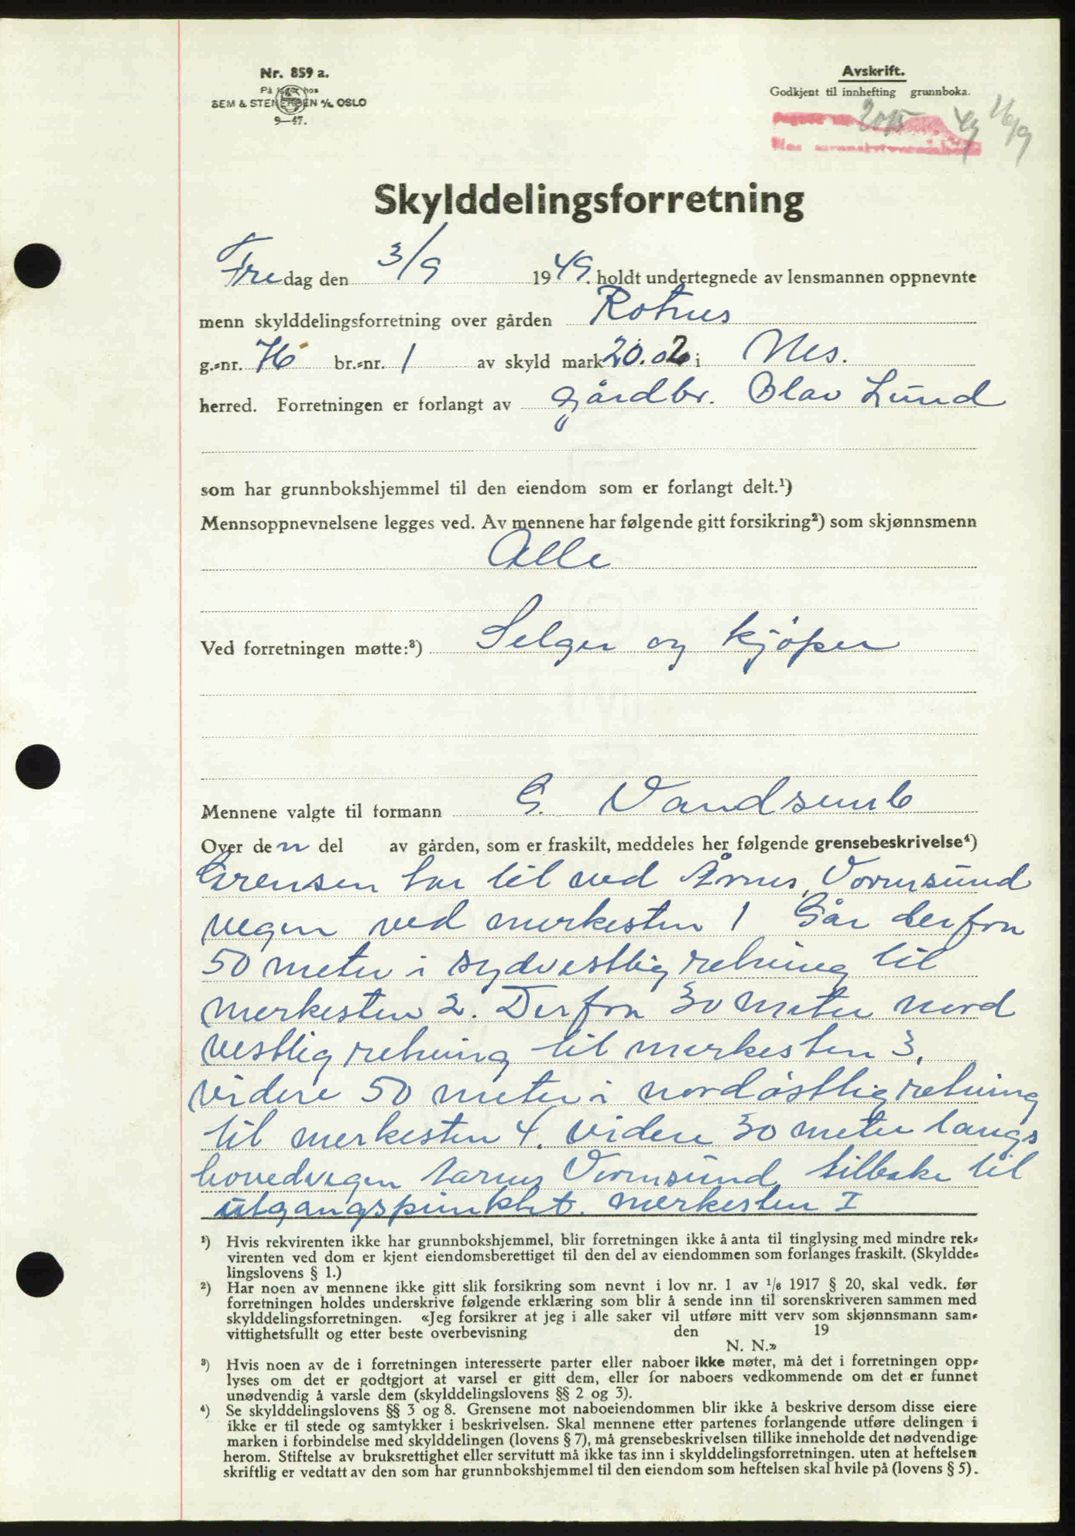 Nr. 859 a.
På lager hos
SEM & STENERSEN A/S, OSLO
9—47.
Avskrift.
Godkjent til innhefting grunnboka.
2015 49 16/9
Skylddelingsforretning
Fredag den 3/9 1949. holdt undertegnede av lensmannen oppnevnte
menn skylddelingsforretning over gården Rotnes
g.-nr. 76 br.-nr. 1 av skyld mark 20.02 i Nes.
herred. Forretningen er forlangt av gårdbr. Olav Lund
som har grunnbokshjemmel til den eiendom som er forlangt delt.¹)
Mennsoppnevnelsene legges ved. Av mennene har følgende gitt forsikring²) som skjønnsmenn
Alle
Ved forretningen møtte:³) Selger og kjöper
Mennene valgte til formann G. Vandsemb
Over den del av gården, som er fraskilt, meddeles her følgende grensebeskrivelse⁴)
Grensen tar til ved Årnes, Vormsund
vegen ved merkesten 1 Går derfra
50 meter i sydvestlig retning til
merkesten 2. Derfra 30 meter nord
vestlig retning til merkesten 3.
videre 50 meter i nordöstlig retning
til merkesten 4. videre 30 meter langs
hovedvegen Aarnes Vormsund, tilbake til
utgangspunktet. merkesten I
¹) Hvis rekvirenten ikke har grunnbokshjemmel, blir forretningen ikke å anta til tinglysing med mindre rek-
virenten ved dom er kjent eiendomsberettiget til den del av eiendommen som forlanges fraskilt. (Skyldde-
lingslovens § 1.)
²) Har noen av mennene ikke gitt slik forsikring som nevnt i lov nr. 1 av ¹/6 1917 § 20, skal vedk. før
forretningen holdes underskrive følgende erklæring som blir å sende inn til sorenskriveren sammen med
skylddelingsforretningen. «Jeg forsikrer at jeg i alle saker vil utføre mitt verv som skjønnsmann sam-
vittighetsfullt og etter beste overbevisning den 19
N. N.»
³) Hvis noen av de i forretningen interesserte parter eller naboer ikke møter, må det i forretningen opp-
lyses om det er godtgjort at varsel er gitt dem, eller for naboers vedkommende om det er funnet
unødvendig å varsle dem (skylddelingslovens §§ 2 og 3).
⁴) Se skylddelingslovens §§ 3 og 8. Grensene mot naboeiendommen blir ikke å beskrive dersom disse eiere
ikke er til stede og samtykker i beskrivelsen. Skal mennene etter partenes forlangende utføre delingen i
marken i forbindelse med skylddelingen (lovens § 7), må grensebeskrivelsen tillike inneholde det nødvendige
herom. Stiftelse av bruksrettighet eller servitutt må ikke tas inn i skylddelingsforretningen. uten at heftelsen
skriftlig er vedtatt av den som har grunnbokshjemmel til den eiendom som heftelsen skal hvile på (lovens § 5).